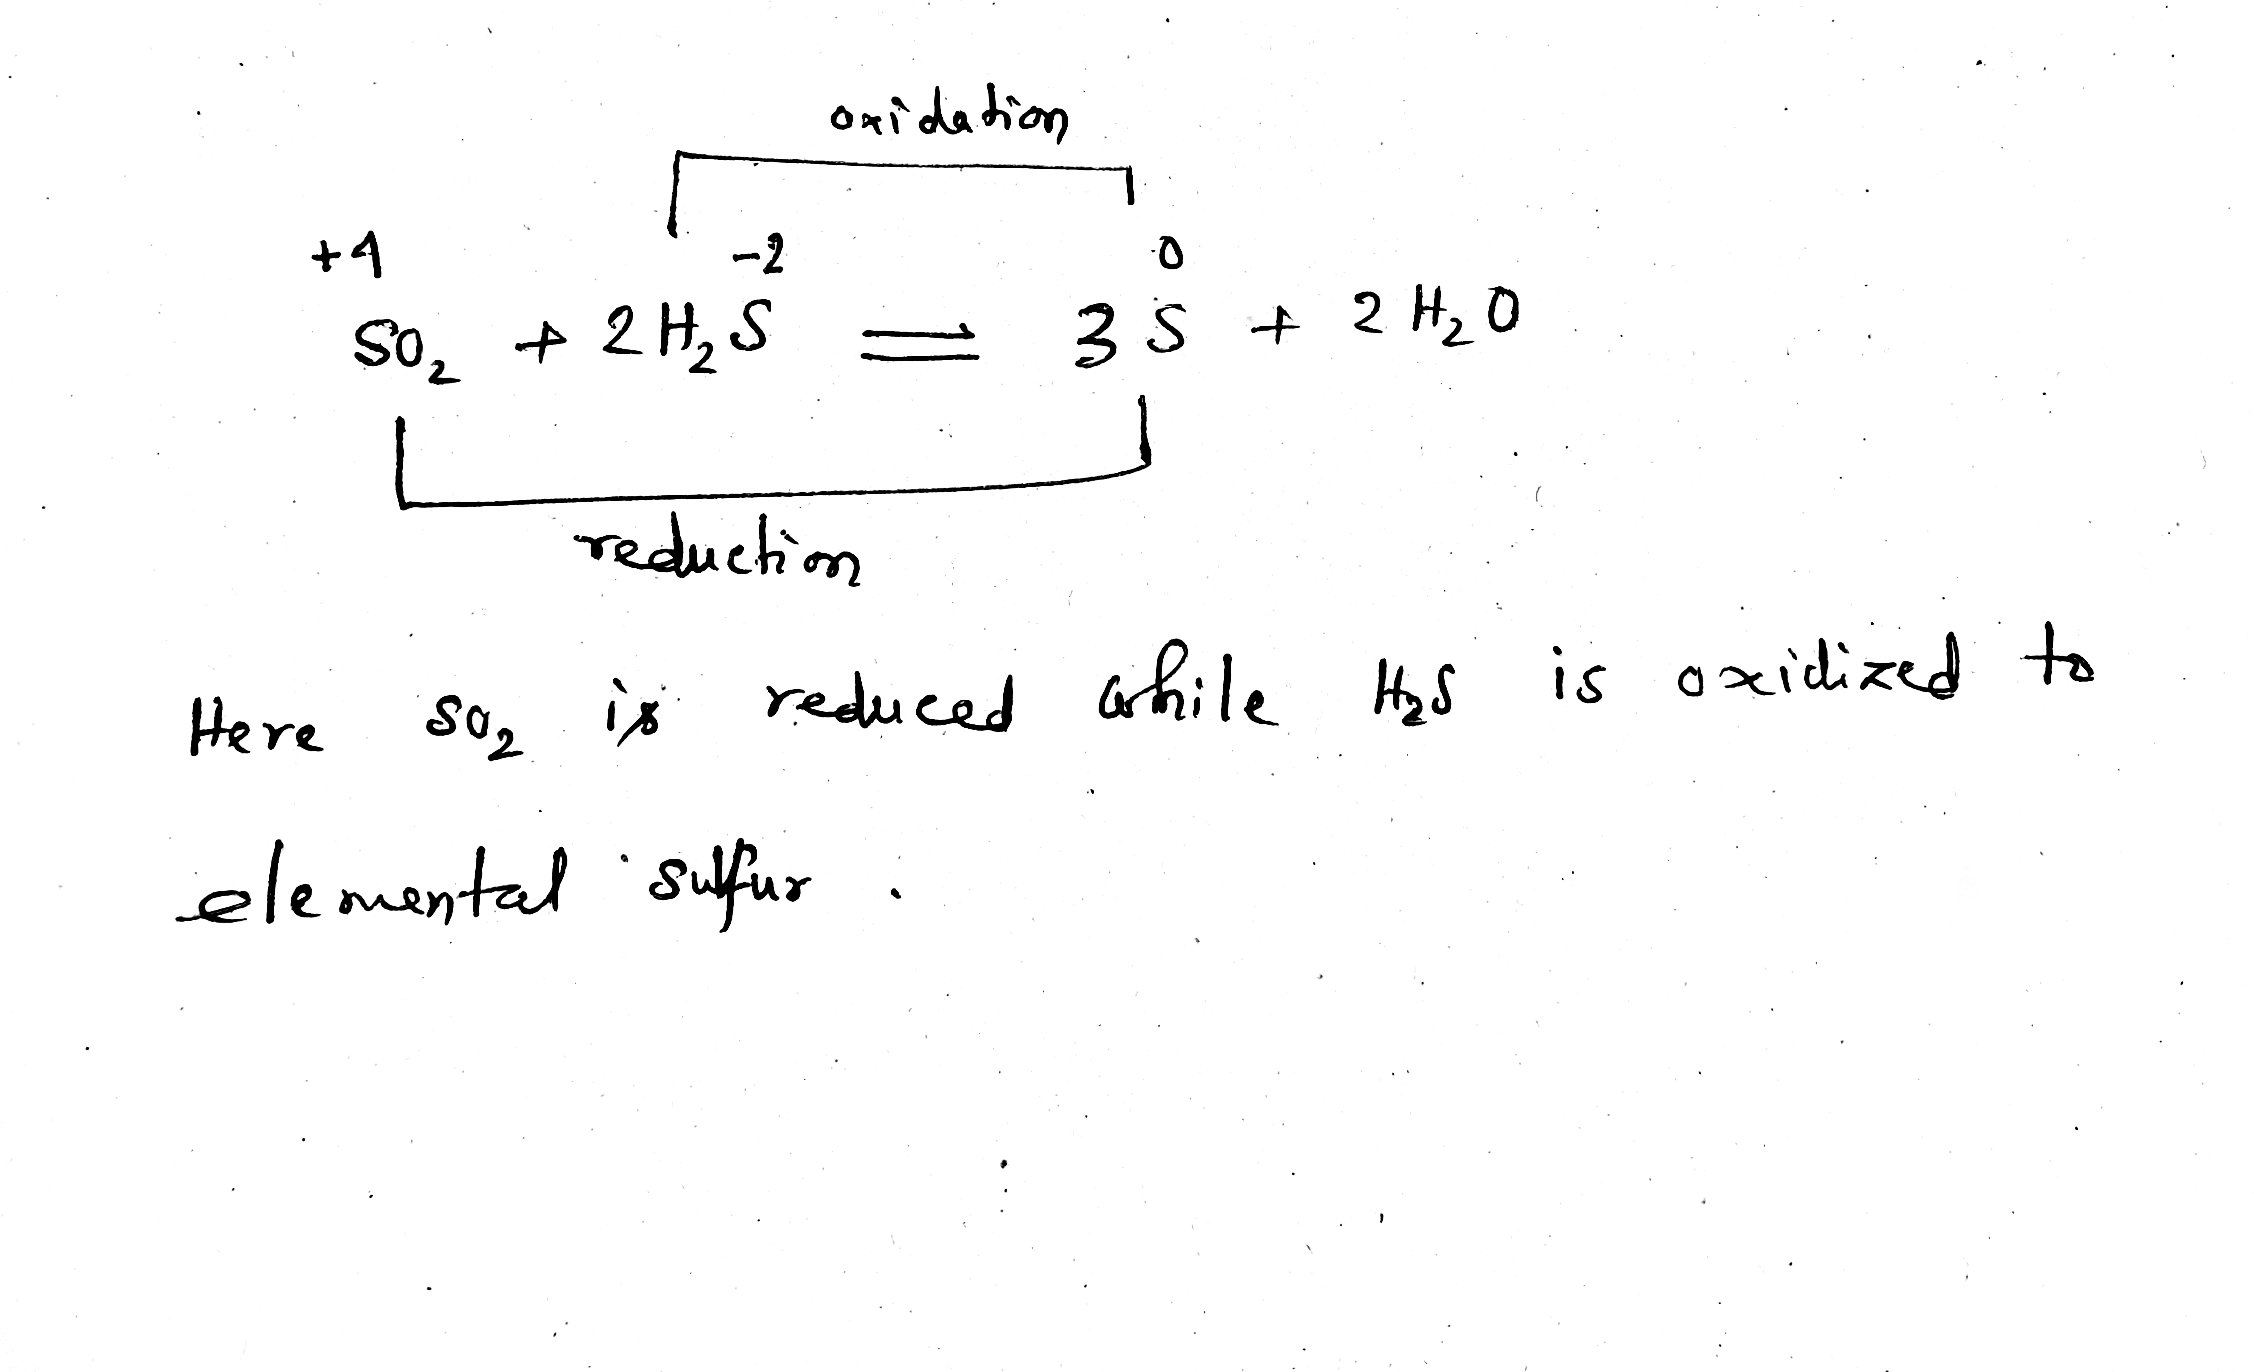 oxidation
+4 -2 0
SO₂ + 2H₂S ⇌ 3S + 2H₂O
reduction
Here SO₂ is reduced while H₂S is oxidized to
elemental sulfur.